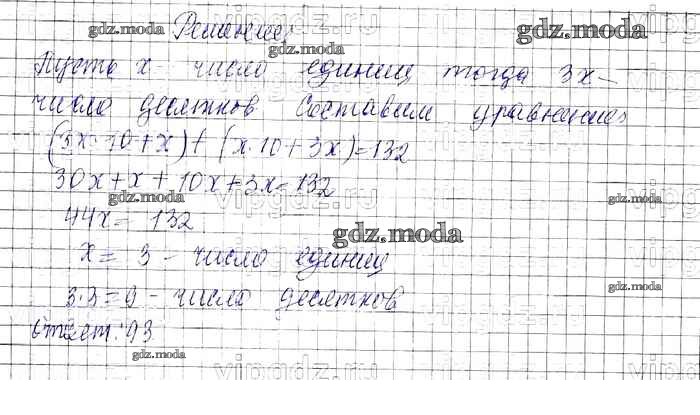 Решение:
Пусть x - число единиц тогда 3x -
число десятков. Составим уравнение:
(3x·10+x)+(x·10+3x)=132
30x+x+10x+3x=132
44x=132
x=3 - число единиц
3·3=9 - число десятков
Ответ: 93
gdz.moda
gdz.moda
gdz.moda
gdz.moda
gdz.moda
gdz.moda
gdz.moda
gdz.moda
vipgdz.ru
vipgdz.ru
vipgdz.ru
vipgdz.ru
vipgdz.ru